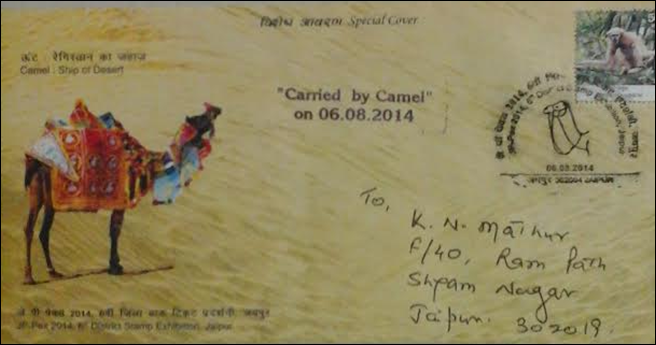 विशेष आवरण Special Cover
ऊंट : रेगिस्तान का जहाज
Camel : Ship of Desert
"Carried by Camel"
on 06.08.2014
06.08.2014
जयपुर 302004 JAIPUR
To,
K. N. Mathur
F/40, Ram Path
Shyam Nagar
Jaipur. 302019.
जे पी पेक्स 2014, 6वीं जिला डाक टिकट प्रदर्शनी, जयपुर
JP-Pex 2014, 6th District Stamp Exhibition, Jaipur